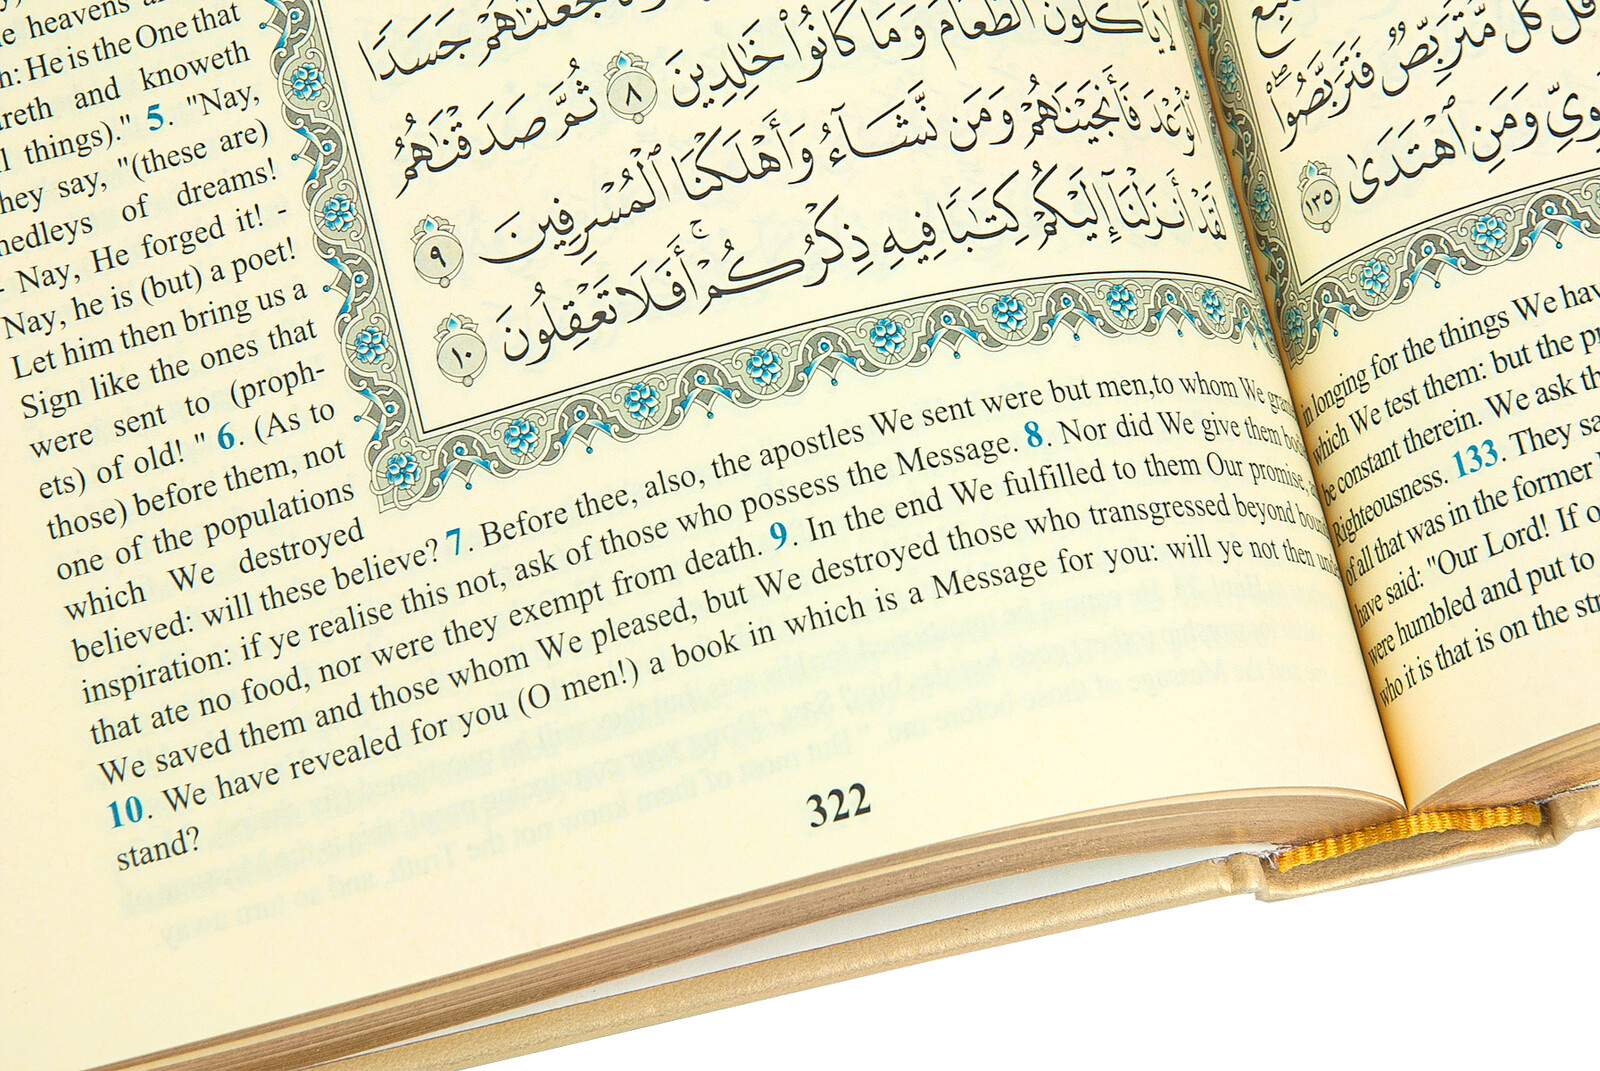 heavens
He is the One that
and knoweth
things)." 5. "Nay,
they say, "(these are)
medleys of dreams!
- Nay, He forged it! -
Nay, he is (but) a poet!
Let him then bring us a
Sign like the ones that
were sent to (proph-
ets) of old! " 6. (As to
those) before them, not
one of the populations
which We destroyed
believed: will these believe? 7. Before thee, also, the apostles We sent were but men,to whom We
inspiration: if ye realise this not, ask of those who possess the Message. 8. Nor did We give them
that ate no food, nor were they exempt from death. 9. In the end We fulfilled to them Our promise,
We saved them and those whom We pleased, but We destroyed those who transgressed beyond
10. We have revealed for you (O men!) a book in which is a Message for you: will ye not then
stand?
جَسَدًا
لَّا يَأْكُلُونَ ٱلطَّعَامَ وَمَا كَانُوا۟ خَٰلِدِينَ ٨ ثُمَّ صَدَقْنَٰهُمُ
ٱلْوَعْدَ فَأَنجَيْنَٰهُمْ وَمَن نَّشَآءُ وَأَهْلَكْنَا ٱلْمُسْرِفِينَ ٩
لَقَدْ أَنزَلْنَآ إِلَيْكُمْ كِتَٰبًا فِيهِ ذِكْرُكُمْ ۖ أَفَلَا تَعْقِلُونَ ١٠
322
قُلْ كُلٌّ مُّتَرَبِّصٌ فَتَرَبَّصُوا۟
وَمَنِ ٱهْتَدَىٰ ١٣٥
in longing for the things We
which We test them: but the
be constant therein. We ask
Righteousness. 133. They
of all that was in the former
have said: "Our Lord! If
were humbled and put to
who it is that is on the